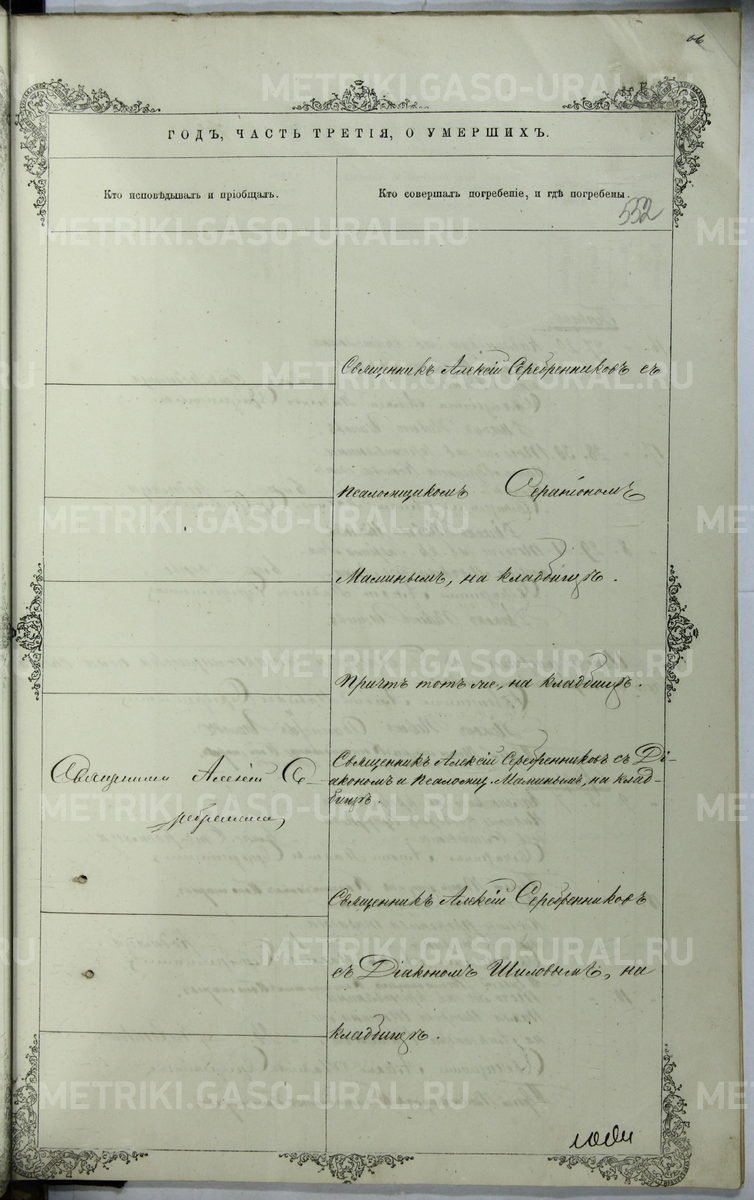 ГОДЪ, ЧАСТЬ ТРЕТІЯ, О УМЕРШИХЪ.
Кто исповѣдывалъ и пріобщалъ.
Кто совершалъ погребеніе, и гдѣ погребены.
552
Священникъ Алексій Серебренниковъ съ
псаломщикомъ Серапіономъ
Маминымъ, на кладбищѣ.
Причтъ тотъ же, на кладбищѣ.
Священникъ Алексій Се-
ребренниковъ
Священникъ Алексій Серебренниковъ съ Ді-
акономъ и псаломщ. Маминымъ, на клад-
бищѣ.
Священникъ Алексій Серебренниковъ
съ Діакономъ Шиловымъ, на
кладбищѣ.
METRIKI.GASO-URAL.RU